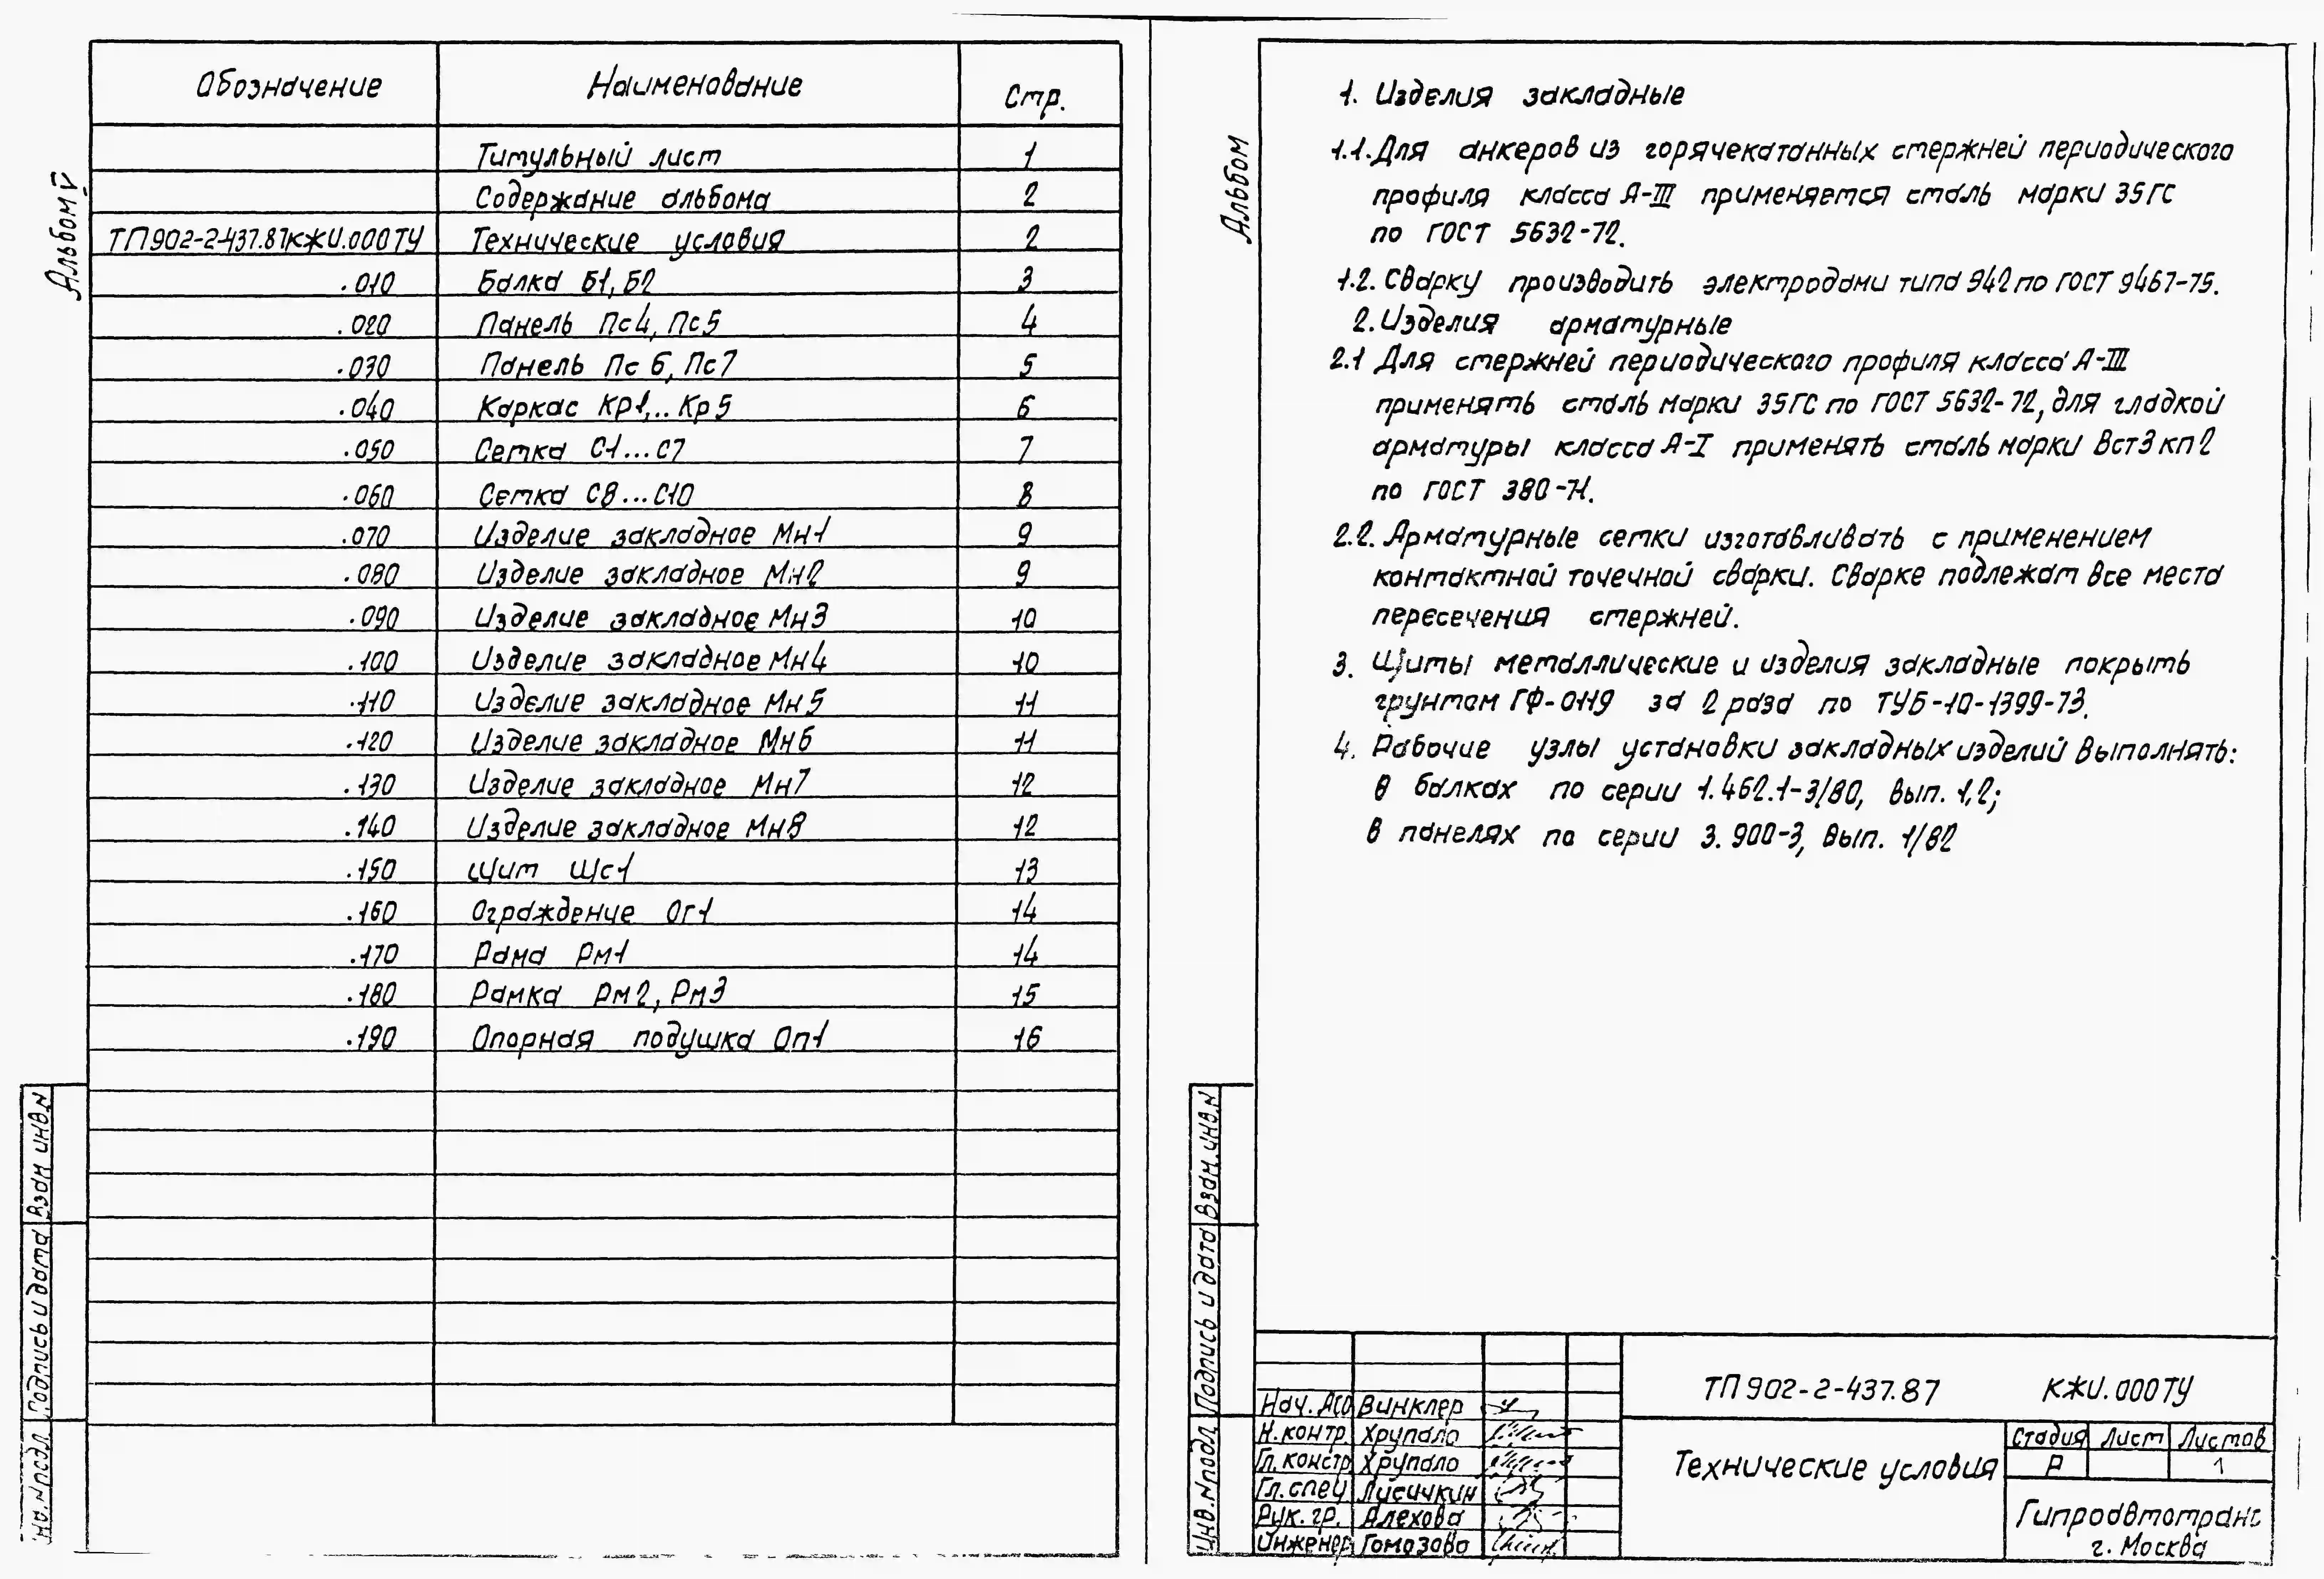 Альбом V
Обозначение Наименование Стр.
Титульный лист 1
Содержание альбома 2
ТП902-2-437.87КЖИ.000ТУ Технические условия 2
.010 Балка Б1, Б2 3
.020 Панель Пс4, Пс5 4
.030 Панель Пс6, Пс7 5
.040 Каркас Кр1... Кр5 6
.050 Сетка С1...С7 7
.060 Сетка С8...С10 8
.070 Изделие закладное Мн1 9
.080 Изделие закладное Мн2 9
.090 Изделие закладное Мн3 10
.100 Изделие закладное Мн4 10
.110 Изделие закладное Мн5 11
.120 Изделие закладное Мн6 11
.130 Изделие закладное Мн7 12
.140 Изделие закладное Мн8 12
.150 Щит Щс1 13
.160 Ограждение Ог1 14
.170 Рама Рм1 14
.180 Рамка Рм2, Рм3 15
.190 Опорная подушка Оп1 16
Взам инв.N
Подпись и дата
Инв.N подл.
Альбом
1. Изделия закладные
1.1. Для анкеров из горячекатанных стержней периодического
профиля класса А-III применяется сталь марки 35ГС
по ГОСТ 5632-72.
1.2. Сварку производить электродами типа Э42 по ГОСТ 9467-75.
2. Изделия арматурные
2.1 Для стержней периодического профиля класса А-III
применять сталь марки 35ГС по ГОСТ 5632-72, для гладкой
арматуры класса А-I применять сталь марки Вст3кп2
по ГОСТ 380-71.
2.2. Арматурные сетки изготавливать с применением
контактной точечной сварки. Сварке подлежат все места
пересечения стержней.
3. Щиты металлические и изделия закладные покрыть
грунтом ГФ-0119 за 2 раза по ТУ6-10-1399-73.
4. Рабочие узлы установки закладных изделий выполнять:
в балках по серии 1.462.1-3/80, вып. 1,2;
в панелях по серии 3.900-3, вып. 1/82
Взам.инв.N
Подпись и дата
Инв.N подл
ТП 902-2-437.87 КЖИ.000ТУ
Нач. АСО Винклер
Н.контр. Хрупало
Гл.констр Хрупало
Гл.спец Лисичкин
Рук.гр. Алехова
Инженер Гомозова
Технические условия
Стадия Лист Листов
Р 1
Гипроавтотранс
г. Москва